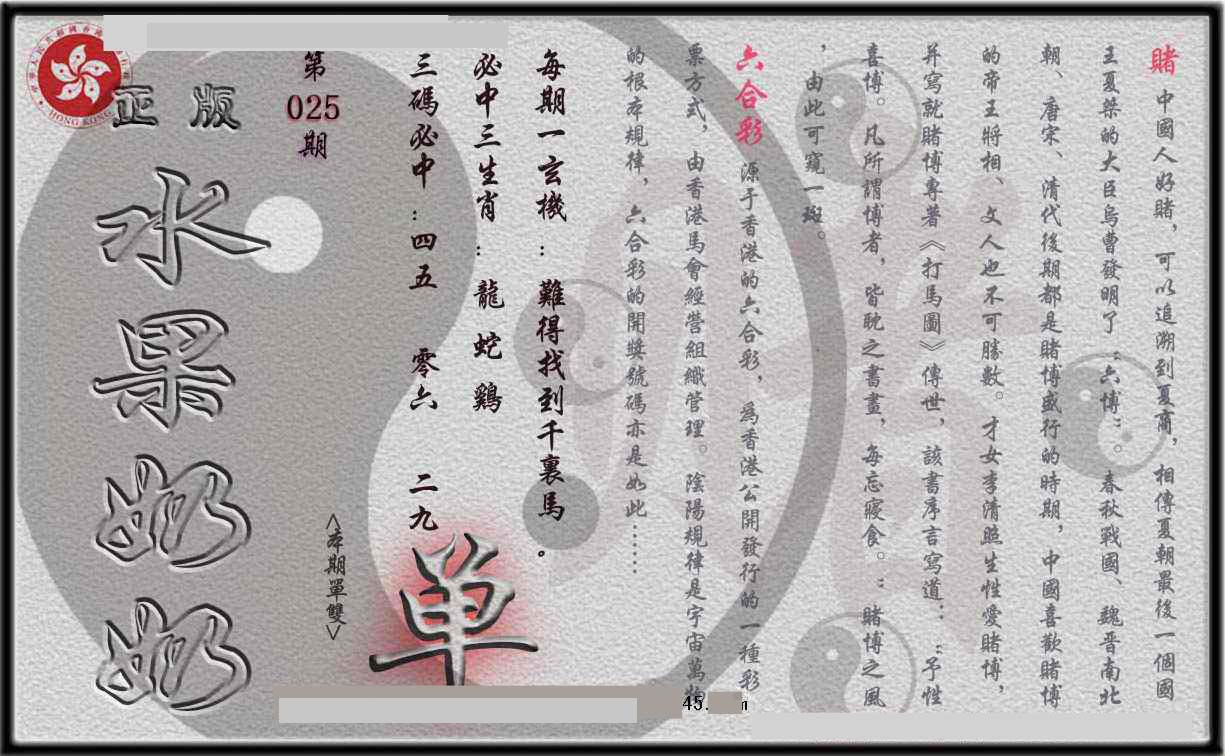 賭 中國人好賭，可以追溯到夏商，相傳夏朝最後一個國
王夏桀的大臣烏曹發明了“六博”。春秋戰國、魏晋南北
朝、唐宋、清代後期都是賭博盛行的時期，中國喜歡賭博
的帝王將相、文人也不可勝數。才女李清照生性愛賭博，
并寫就賭博專著《打馬圖》傳世，該書序言寫道：“予性
喜博。凡所謂博者，皆耽之書畫，每忘寢食。”賭博之風
，由此可窺一斑。
六合彩 源于香港的六合彩，為香港公開發行的一種彩
票方式，由香港馬會經營組織管理。陰陽規律是宇宙萬物
的根本規律，六合彩的開獎號碼亦是如此……
每期一玄機：難得找到千裏馬。
必中三生肖：龍 蛇 鷄
三碼必中：四五 零六 二九
<本期單雙>
单
第
025
期
正版
水果奶奶
HONG KONG
45.